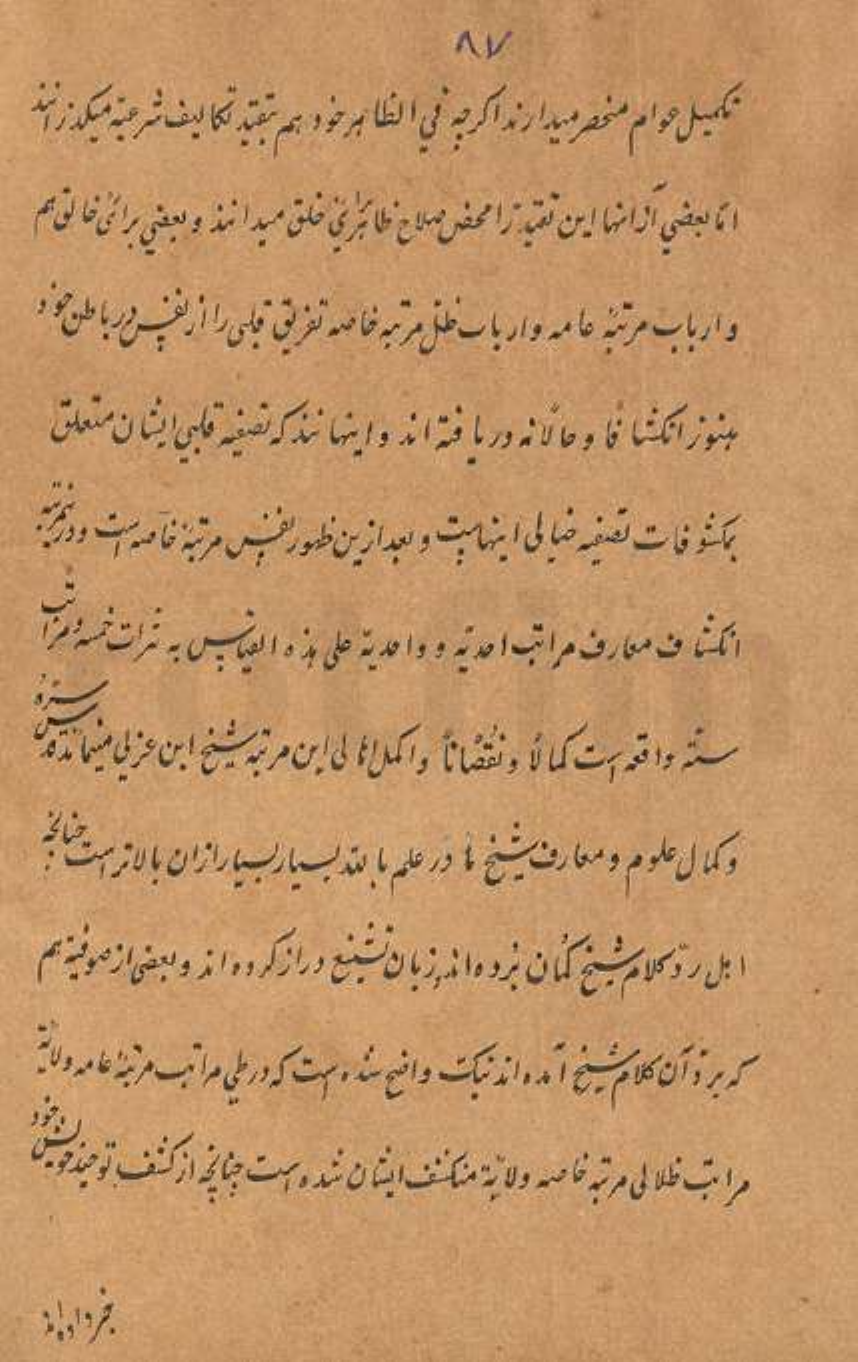 ۸۷
تکمیل عوام منحصر میدارند اگرچه في الظاهر خود هم بتقید تکالیف شرعیّه میگذرانند
امّا بعضي ازانها این تقید را محض صلاح ظاهر برائ خلق میدانند و بعضي برائ خالق هم
و ارباب مرتبهٔ عامه و ارباب ظلّ مرتبه خاصه تفریق قلبی را از نفس در باطن خود
هنوز انکشافًا و حالًا نه دریافته اند و اینها نند که تصفیه قلبي ایشان متعلق
بمکشوفات تصفیه خیالی اینهاست و بعد ازین ظهور نفس مرتبهٔ خاصه است و درینمرتبه
انکشاف معارف مراتب احدیّه و واحدیة علی هذه القیاس به تنزلات خمسه و مراتب
ستّه واقعه است کمالًا و نُقصانًا و اکمل اهالی این مرتبه شیخ ابن عربی مینمایند قدس سرهٔ
و کمال علوم و معارف شیخ ما در علم بالله بسیار بسیار ازان بالاتر است چنانچه
اهل ردّ کلام شیخ گمان نبرده اند زبان تشنیع دراز کرده اند و بعضی از صوفیّه هم
که بر ردّ آن کلام شیخ آمده اند نیک واضح شده است که در طي مراتب مرتبهٔ عامه ولایة
مراتب ظلالی مرتبه خاصه ولایّة منکشف ایشان شده است چنانچه از کشف توحید خویش خود
خبر داده اند